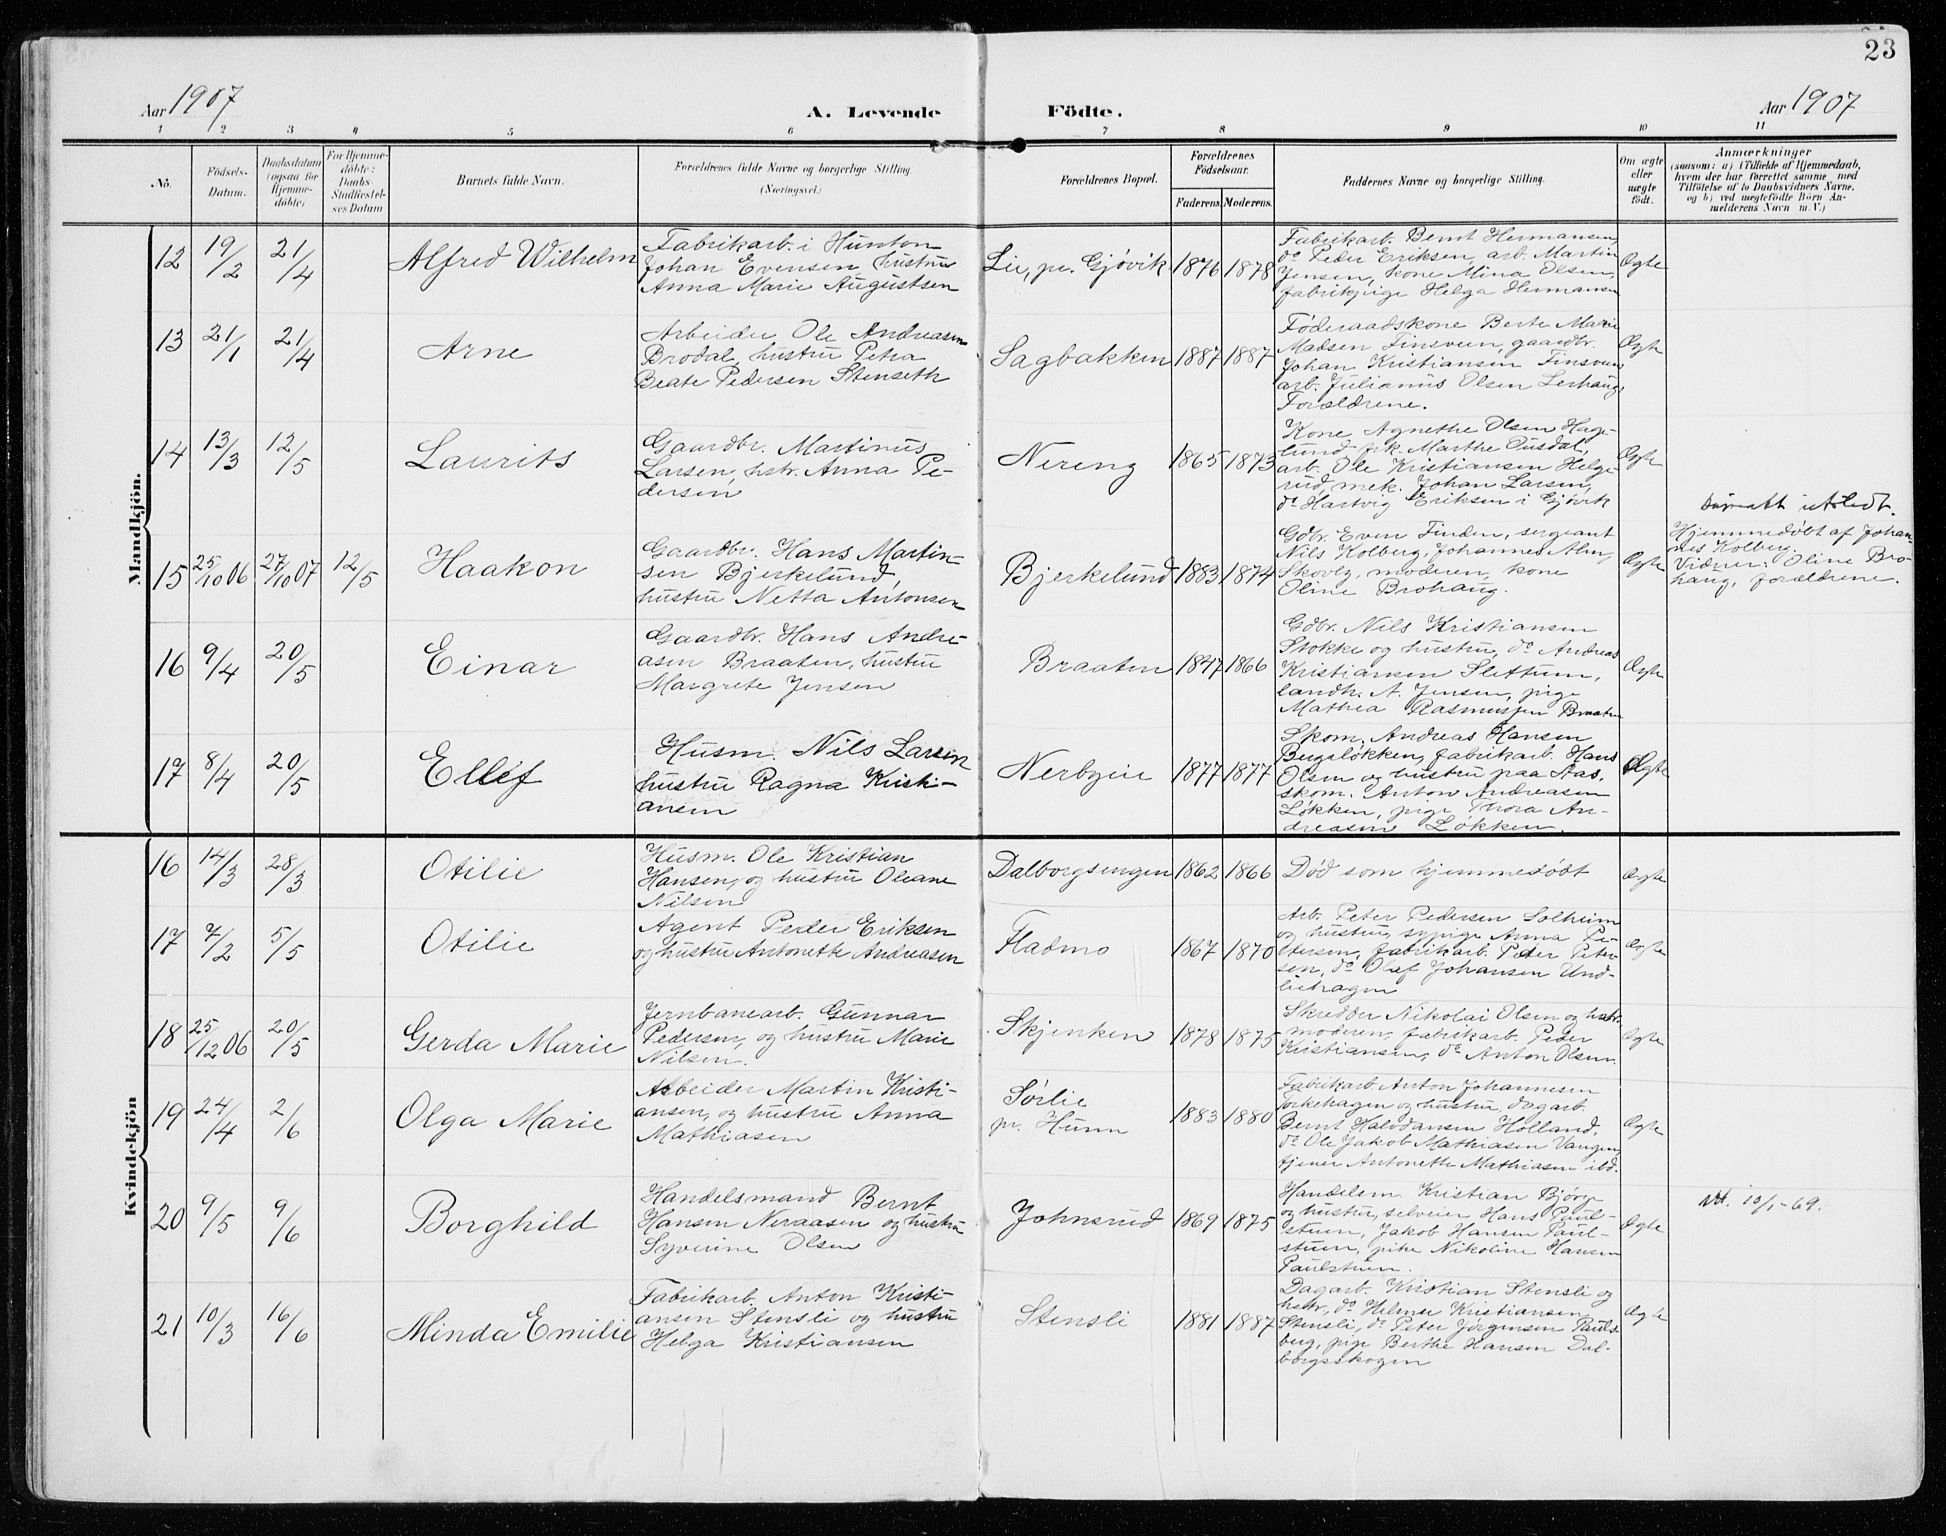 23
Aar 1907
A. Levende Födte.
Aar 1907
1 2 3 4 5 6 7 8 9 10 11
No.
Födsels-
Datum.
Daabsdatum
(ogsaa for
Hjemme-
döbte)
For Hjemme-
döbte:
Daabs-
Stadfæstel-
ses Datum
Barnets fulde Navn.
Forældrenes fulde Navne og borgerlige Stilling
(Næringsvei.)
Forældrenes Bopæl.
Forældrenes
Födselsaar.
Faderens. Moderens.
Faddernes Navne og borgerlige Stilling.
Om ægte
eller
uægte
födt.
Anmærkninger
(saasom: a) i Tilfælde af Hjemmedaab,
hvem der har forrettet samme med
Tilföielse af to Daabsvidners Navne,
og b) ved uægtefödte Börn An-
melderens Navn m. V.)
Mandkjön.
12 19/2 21/4 Alfred Wilhelm
Fabrikarb. i Hunton
Johan Evensen, hustru
Anna Marie Augustsen
Lie, pr. Gjøvik 1876 1878
Fabrikarb. Bernt Hermansen,
do Peder Eriksen, arb. Martin
Jensen, kone Mina Olsen,
fabrikpige Helga Hermansen
Ægte
13 21/1 21/4 Arne
Arbeider Ole Andreasen
Brodal, hustru Petra
Beate Pedersen Stenseth
Sagbakken 1887 1887
Føderaadskone Berte Marie
Madsen Finsveen, gaardbr.
Johan Kristiansen Finsveen
arb. Julianus Olsen Lerhaug,
Forældrene.
Ægte
14 13/3 12/5 Laurits
Gaardbr. Martinus
Larsen, hstr. Anna Pe-
dersen
Nereng 1865 1873
Kone Agnethe Olsen Hage-
lund, frk. Marthe Ousdal,
arb. Ole Kristiansen Helge-
rud, mek. Johan Larsen,
do Hartvig Eriksen i Gjøvik
Ægte
15 25/10 06 27/10 07 12/5 Haakon
Gaardbr. Hans Martin-
sen Bjerkelund,
hustru Netta Antonsen
Bjerkelund 1883 1874
Gdbr. Even Finden, sergeant
Nils Kolberg, Johannes Alm,
Skovlg, moderen, kone
Oline Brohaug.
Ægte
utstedt.
Hjemmedøbt af Johan-
nes Kolberg
Vidner: Oline Bro-
haug, forældrene.
16 9/4 20/5 Einar
Gaardbr. Hans Andre-
asen Braaten, hustru
Margrete Jensen
Braaten 1847 1866
Gdbr. Nils Kristiansen
Stokke og hustru, do Andreas
Kristiansen Slettum,
landh. A. Jensen, pige
Mathea Rasmussen Braaten
Ægte
17 8/4 20/5 Ellef
Husm. Nils Larsen
hustru Ragna Kristi-
ansen
Nerbyeie 1877 1877
Skom. Andreas Hansen
Bugsløkken, fabrikarb. Hans
Olsen og hustru paa Aas,
skom. Anton Andreasen
Løkken, pige Thora An-
dreasen Løkken.
Ægte
Kvindekjön
16 14/3 28/3 Otilie
Husm. Ole Kristian
Hansen, og hustru Oleane
Nilsen
Dalborgsengen 1862 1866
Død som hjemmedøbt
Ægte
17 7/2 5/5 Otilie
Agent Peder Eriksen
og hustru Antonette Andreasen
Fladmo 1867 1870
Arb. Peter Pedersen Solheim
og hustru, sypige Anna Pe-
tersen, fabrikarb. Peder Peter-
sen, do Olaf Johansen Und-
liehagen
Ægte
18 25/12 06 20/5 Gerda Marie
Jernbanearb. Gunnar
Pedersen, og hustru Marie
Nilsen.
Skjenken 1878 1875
Skredder Nikolai Olsen og hstr.
moderen, fabrikarb. Peder
Kristiansen, do Anton Olsen.
Ægte
19 24/4 2/6 Olga Marie
Arbeider Martin Kristi-
ansen, og hustru Anna
Mathiasen
Sørlie
pr. Hunn
1883 1880
Fabrikarb Anton Johannesen
Torkehagen og hustru, dagarb.
Bernt Halvdansen Holland,
do Ole Jakob Mathiasen Vangen,
tjener Antonette Mathiasen ibd.
Ægte
20 9/5 9/6 Borghild
Handelsmand Bernt
Hansen Neraasen og hustru
Syverine Olsen
Johnsrud 1869 1875
Handelsm. Kristian Bjørge
og hustru, selveier Hans Paul-
stuen, Jakob Hansen Paul-
stuen, pike Nikoline Hansen
Paulstuen.
Ægte
Att. 10/1-69.
21 10/3 16/6 Minda Emilie
Fabrikarb. Anton Kristi-
ansen Stensli og hustru
Helga Kristiansen
Stensli 1881 1887
Dagarb. Kristian Stensli og
hstr, do Helmer Kristiansen
Stensli, do Peter Jørgensen Pauls-
berg, pige Berthe Hansen Dal-
borgsskogen
Ægte